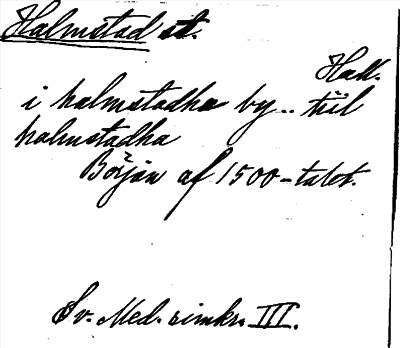 Halmstad st.
Hall.
i halmstadha by .. till
halmstadha
Början af 1500-talet.
Sv. Med. rimkr. III.